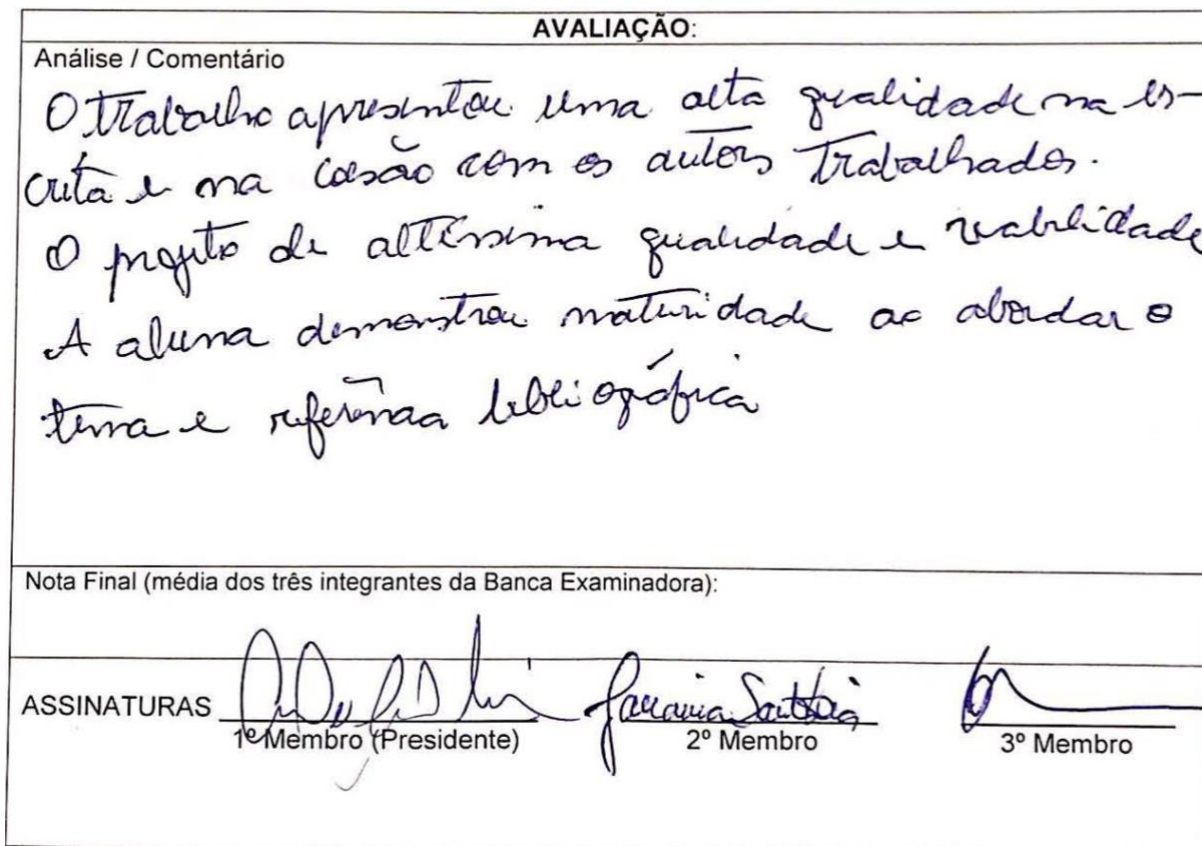 AVALIAÇÃO:
Análise / Comentário
O trabalho apresentou uma alta qualidade na es-
crita e na coesão com os autores trabalhados.
O projeto de altíssima qualidade e viabilidade
A aluna demonstrou maturidade ao abordar o
tema e referência bibliográfica
Nota Final (média dos três integrantes da Banca Examinadora):
ASSINATURAS
1º Membro (Presidente) 2º Membro 3º Membro